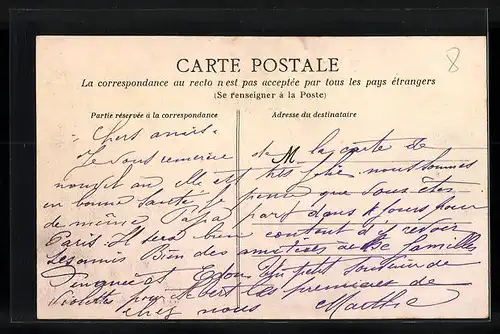 CARTE POSTALE
La correspondance au recto n'est pas acceptée par tous les pays étrangers
(Se renseigner à la Poste)
Partie réservée à la correspondance
Adresse du destinataire
8
Chers amis
Je vous remercie de M la carte de
nouvel an elle est très jolie nous sommes
en bonne santé je pense que vous êtes
de même Papa part dans jours pour
Paris. Il sera bien content d'y revoir
ses amis Bien des amitiés de familles
et un petit souvenir de
violettes pour Albert les premières de
chez nous Marthe